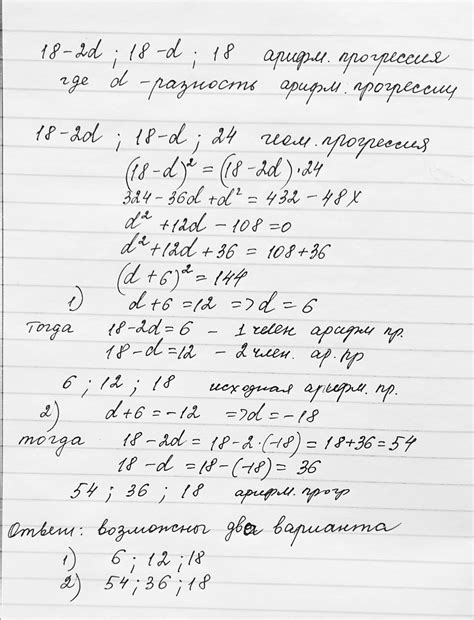 18-2d ; 18-d ; 18 арифм. прогрессия
где d -разность арифм. прогрессии
18-2d ; 18-d ; 24 геом. прогрессия
(18-d)² = (18-2d)·24
324-36d+d² = 432-48x
d²+12d-108=0
d²+12d+36=108+36
(d+6)²=144
1) d+6=12 =>d=6
тогда 18-2d=6 - 1 член арифм пр.
18-d=12 - 2 член. ар. пр
6 ; 12 ; 18 исходная арифм. пр.
2) d+6=-12 =>d=-18
тогда 18-2d=18-2·(-18)=18+36=54
18-d=18-(-18)=36
54 ; 36 ; 18 арифм. прогр
Ответ: возможны два варианта
1) 6 ; 12 ; 18
2) 54 ; 36 ; 18